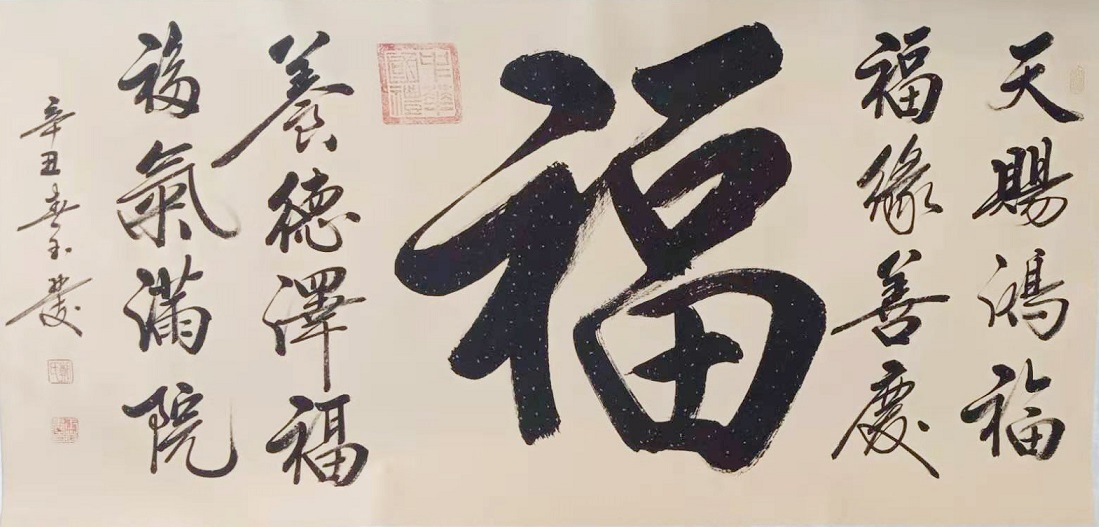 天賜鴻福
福緣善慶
福
養德澤福
福氣滿院
辛丑春玉